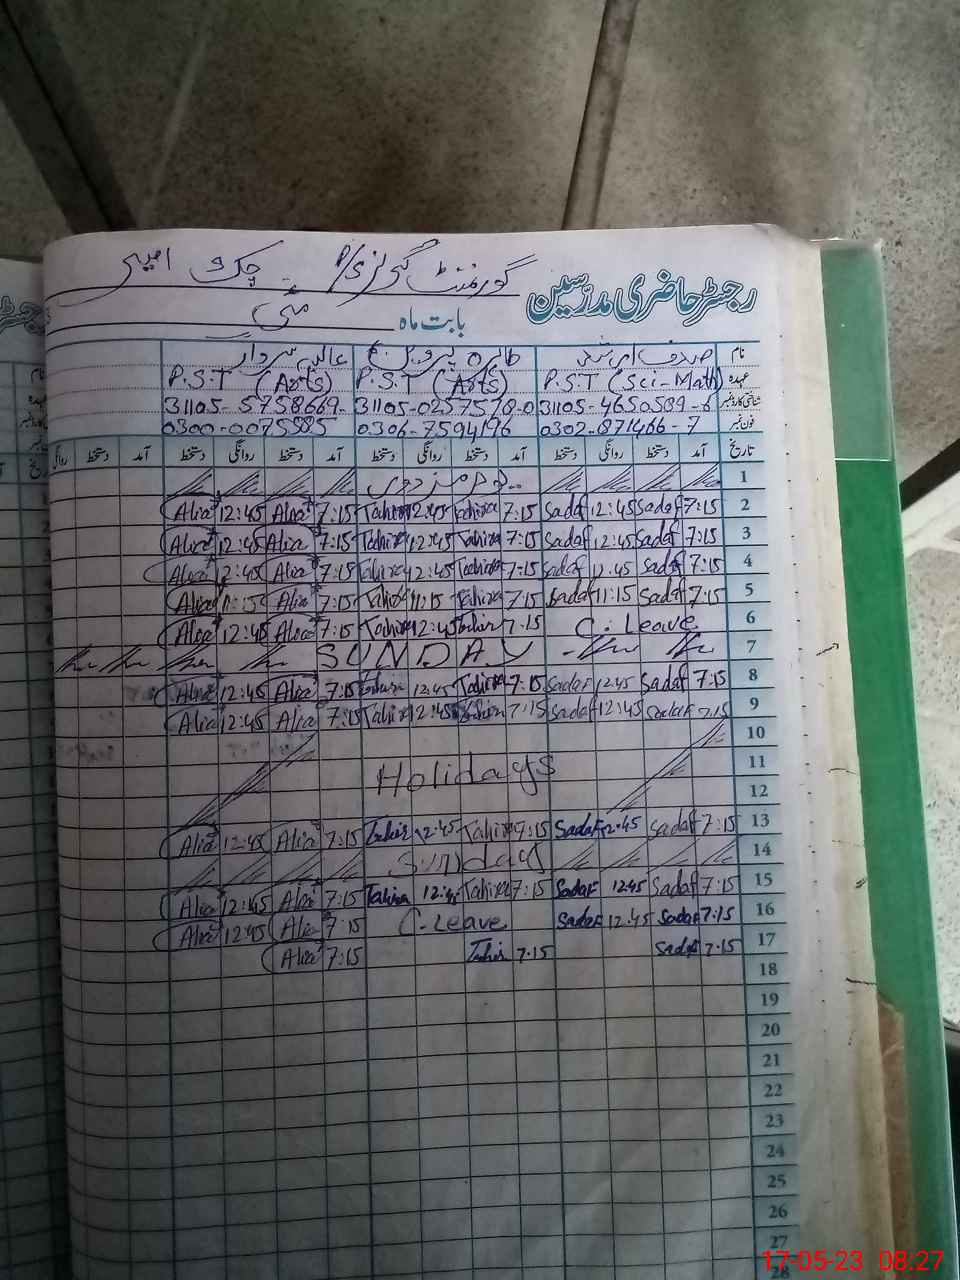 گورنمنٹ گرلز P/S چک 9 امین
رجسٹر حاضری مدرّسین
بابت ماہ مئی
نام صدف ارشد طاہرہ پروین عالیہ سردار
عہدہ P.S.T (Sci-Math) P.S.T (Arts) P.S.T (Arts)
شناختی کارڈ نمبر 31105-4650589-6 31105-0257578-0 31105-5758669-
فون نمبر 0302-871466-7 0306-7594196 0300-0075885
تاریخ آمد دستخط روانگی دستخط آمد دستخط روانگی دستخط آمد دستخط روانگی دستخط آمد دستخط روانگی
1
Alia 12:45 Alia 7:15 Tahira 12:45 Tahira 7:15 Sadaf 12:45 Sadaf 7:15 2
Alia 12:45 Alia 7:15 Tahira 12:45 Tahira 7:15 Sadaf 12:45 Sadaf 7:15 3
Alia 12:45 Alia 7:15 Tahira 12:45 Tahira 7:15 Sadaf 12:45 Sadaf 7:15 4
Alia 11:15 Alia 7:15 Tahira 11:15 Tahira 7:15 Sadaf 11:15 Sadaf 7:15 5
Alia 12:45 Alia 7:15 Tahira 12:45 Tahir 7:15 C. Leave 6
SUNDAY 7
Alia 12:45 Alia 7:15 Tahira 12:45 Tahira 7:15 Sadaf 12:45 Sadaf 7:15 8
Alia 12:45 Alia 7:15 Tahira 12:45 Tahira 7:15 Sadaf 12:45 Sadaf 7:15 9
10
Holidays 11
12
Alia 12:45 Alia 7:15 Tahir 12:45 Tahira 7:15 Sadaf 12:45 Sadaf 7:15 13
Sunday 14
Alia 12:45 Alia 7:15 Tahira 12:45 Tahira 7:15 Sadaf 12:45 Sadaf 7:15 15
Alia 12:45 Alia 7:15 C.Leave Sadaf 12:45 Sadaf 7:15 16
Alia 7:15 Tahir 7:15 Sadaf 7:15 17
18
19
20
21
22
23
24
25
26
27
28
17-05-23 08:27